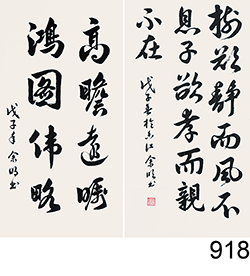 樹欲靜而風不
息子欲孝而親
不在
戊子春於香江余明書
高瞻遠矚
鴻圖偉略
戊子年余明書
918